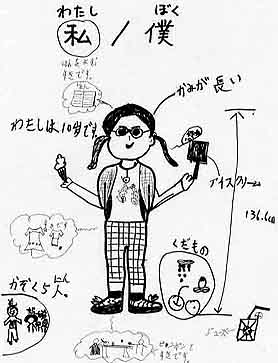 わたし ぼく
私 / 僕
ほんをよむ
すきです。
かみが長い
わたしは10才です。
アイスクリーム
136.6cm
くだもの
にん
かぞく5人。
ジュース
ピンポンが
すきです。